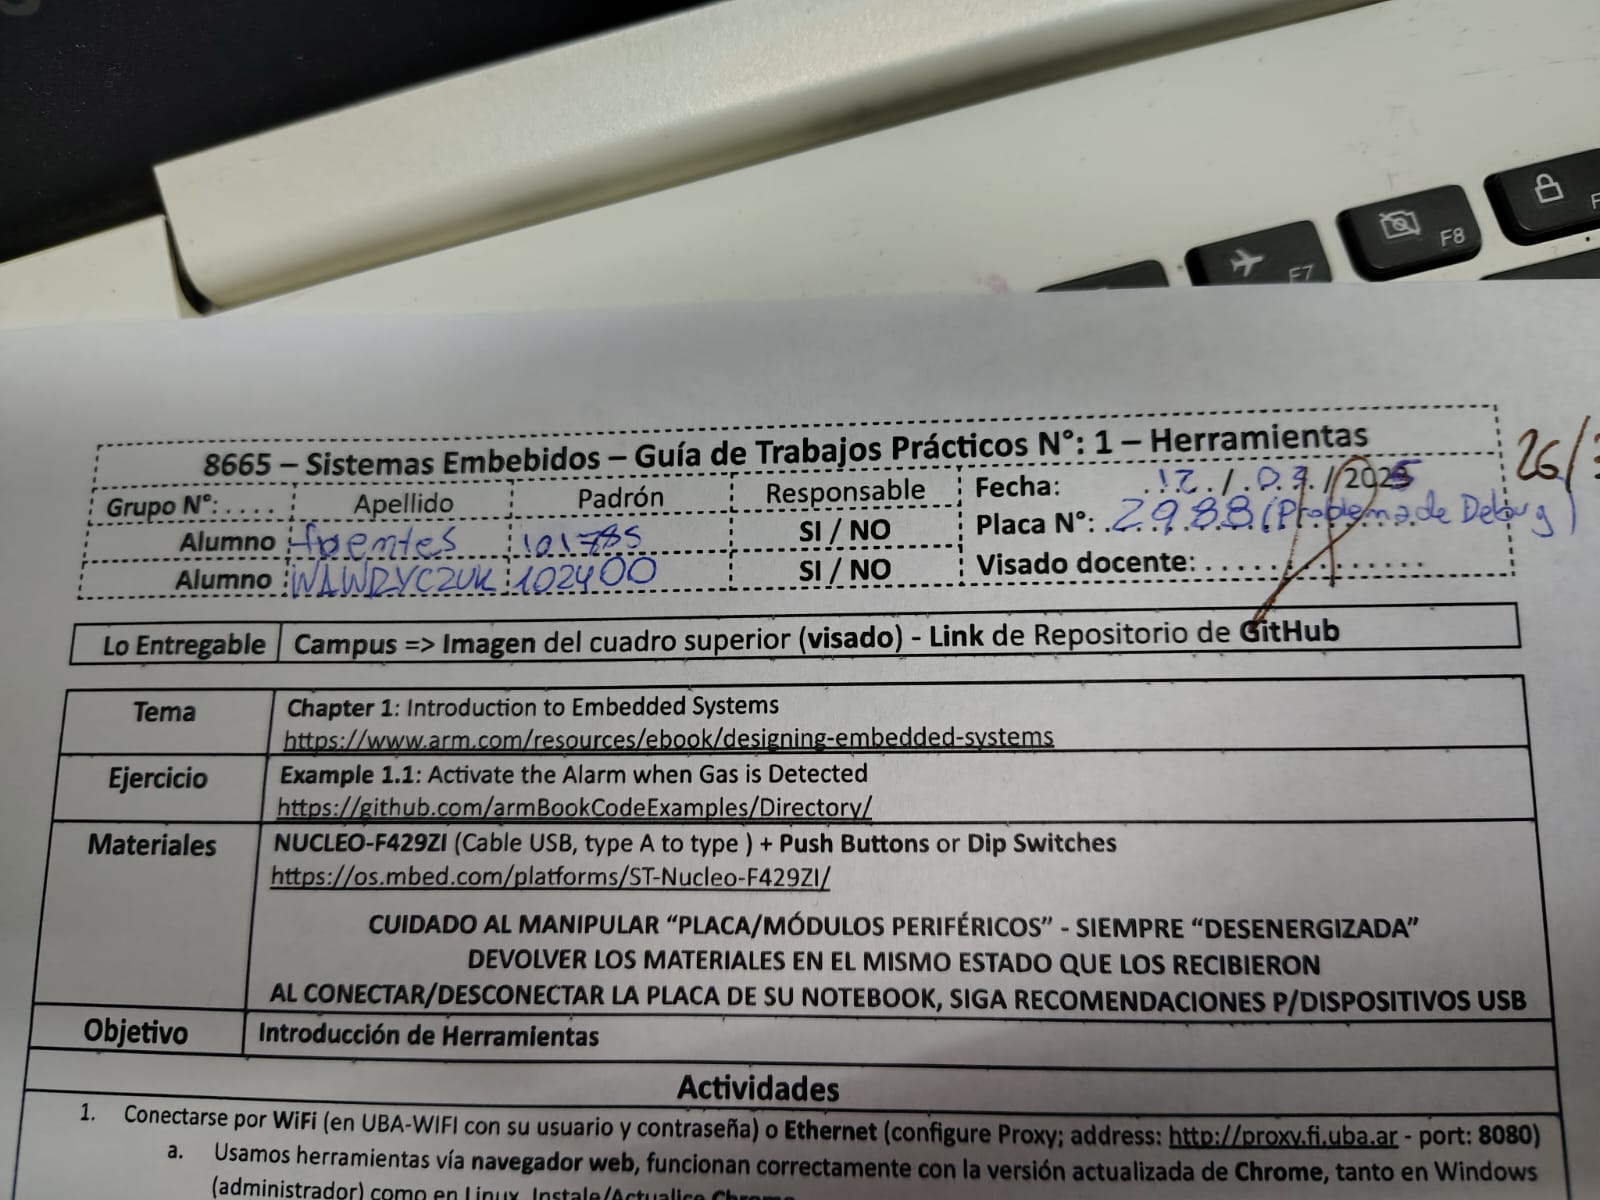 F7
F8
8665 – Sistemas Embebidos – Guía de Trabajos Prácticos N°: 1 – Herramientas
26/
Grupo N°: . . . . Apellido Padrón Responsable Fecha: 12 / 03 / 2025
Alumno fuentes 101785 SI / NO Placa N°: 2988 (Problema de Debug)
Alumno WAWRYCZUK 102400 SI / NO Visado docente: . . . . . . . . . . . . . .
Lo Entregable Campus => Imagen del cuadro superior (visado) - Link de Repositorio de GitHub
Tema Chapter 1: Introduction to Embedded Systems
https://www.arm.com/resources/ebook/designing-embedded-systems
Ejercicio Example 1.1: Activate the Alarm when Gas is Detected
https://github.com/armBookCodeExamples/Directory/
Materiales NUCLEO-F429ZI (Cable USB, type A to type ) + Push Buttons or Dip Switches
https://os.mbed.com/platforms/ST-Nucleo-F429ZI/
CUIDADO AL MANIPULAR “PLACA/MÓDULOS PERIFÉRICOS” - SIEMPRE “DESENERGIZADA”
DEVOLVER LOS MATERIALES EN EL MISMO ESTADO QUE LOS RECIBIERON
AL CONECTAR/DESCONECTAR LA PLACA DE SU NOTEBOOK, SIGA RECOMENDACIONES P/DISPOSITIVOS USB
Objetivo Introducción de Herramientas
Actividades
1. Conectarse por WiFi (en UBA-WIFI con su usuario y contraseña) o Ethernet (configure Proxy; address: http://proxy.fi.uba.ar - port: 8080)
a. Usamos herramientas vía navegador web, funcionan correctamente con la versión actualizada de Chrome, tanto en Windows
(administrador) como en Linux. Instale/Actualice Chrome